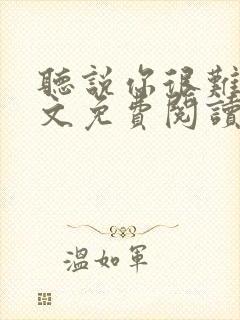 聽說你很難
文免費閱讀
溫如軍